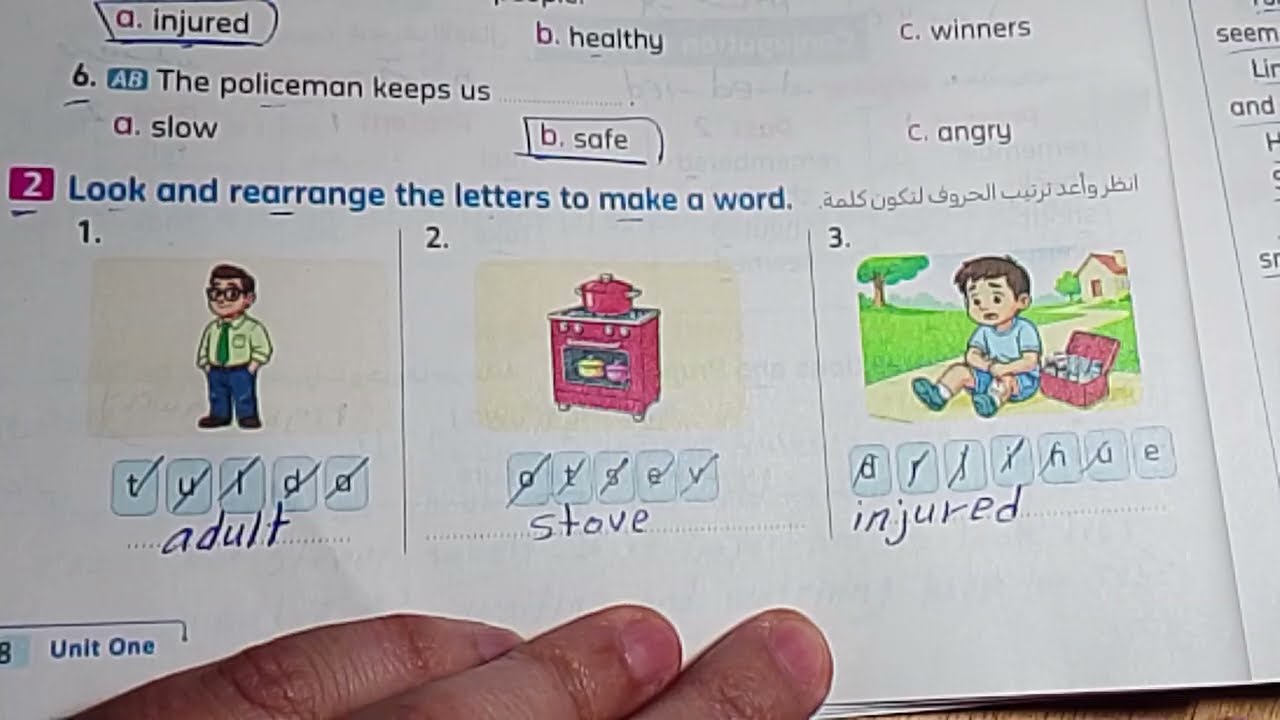 a. injured b. healthy c. winners
6. AB The policeman keeps us ............ .
a. slow b. safe c. angry
2 Look and rearrange the letters to make a word. انظر وأعد ترتيب الحروف لتكون كلمة.
1. 2. 3.
t u l d a o t s e v d r j i n u e
adult stove injured
8 Unit One
seem
and